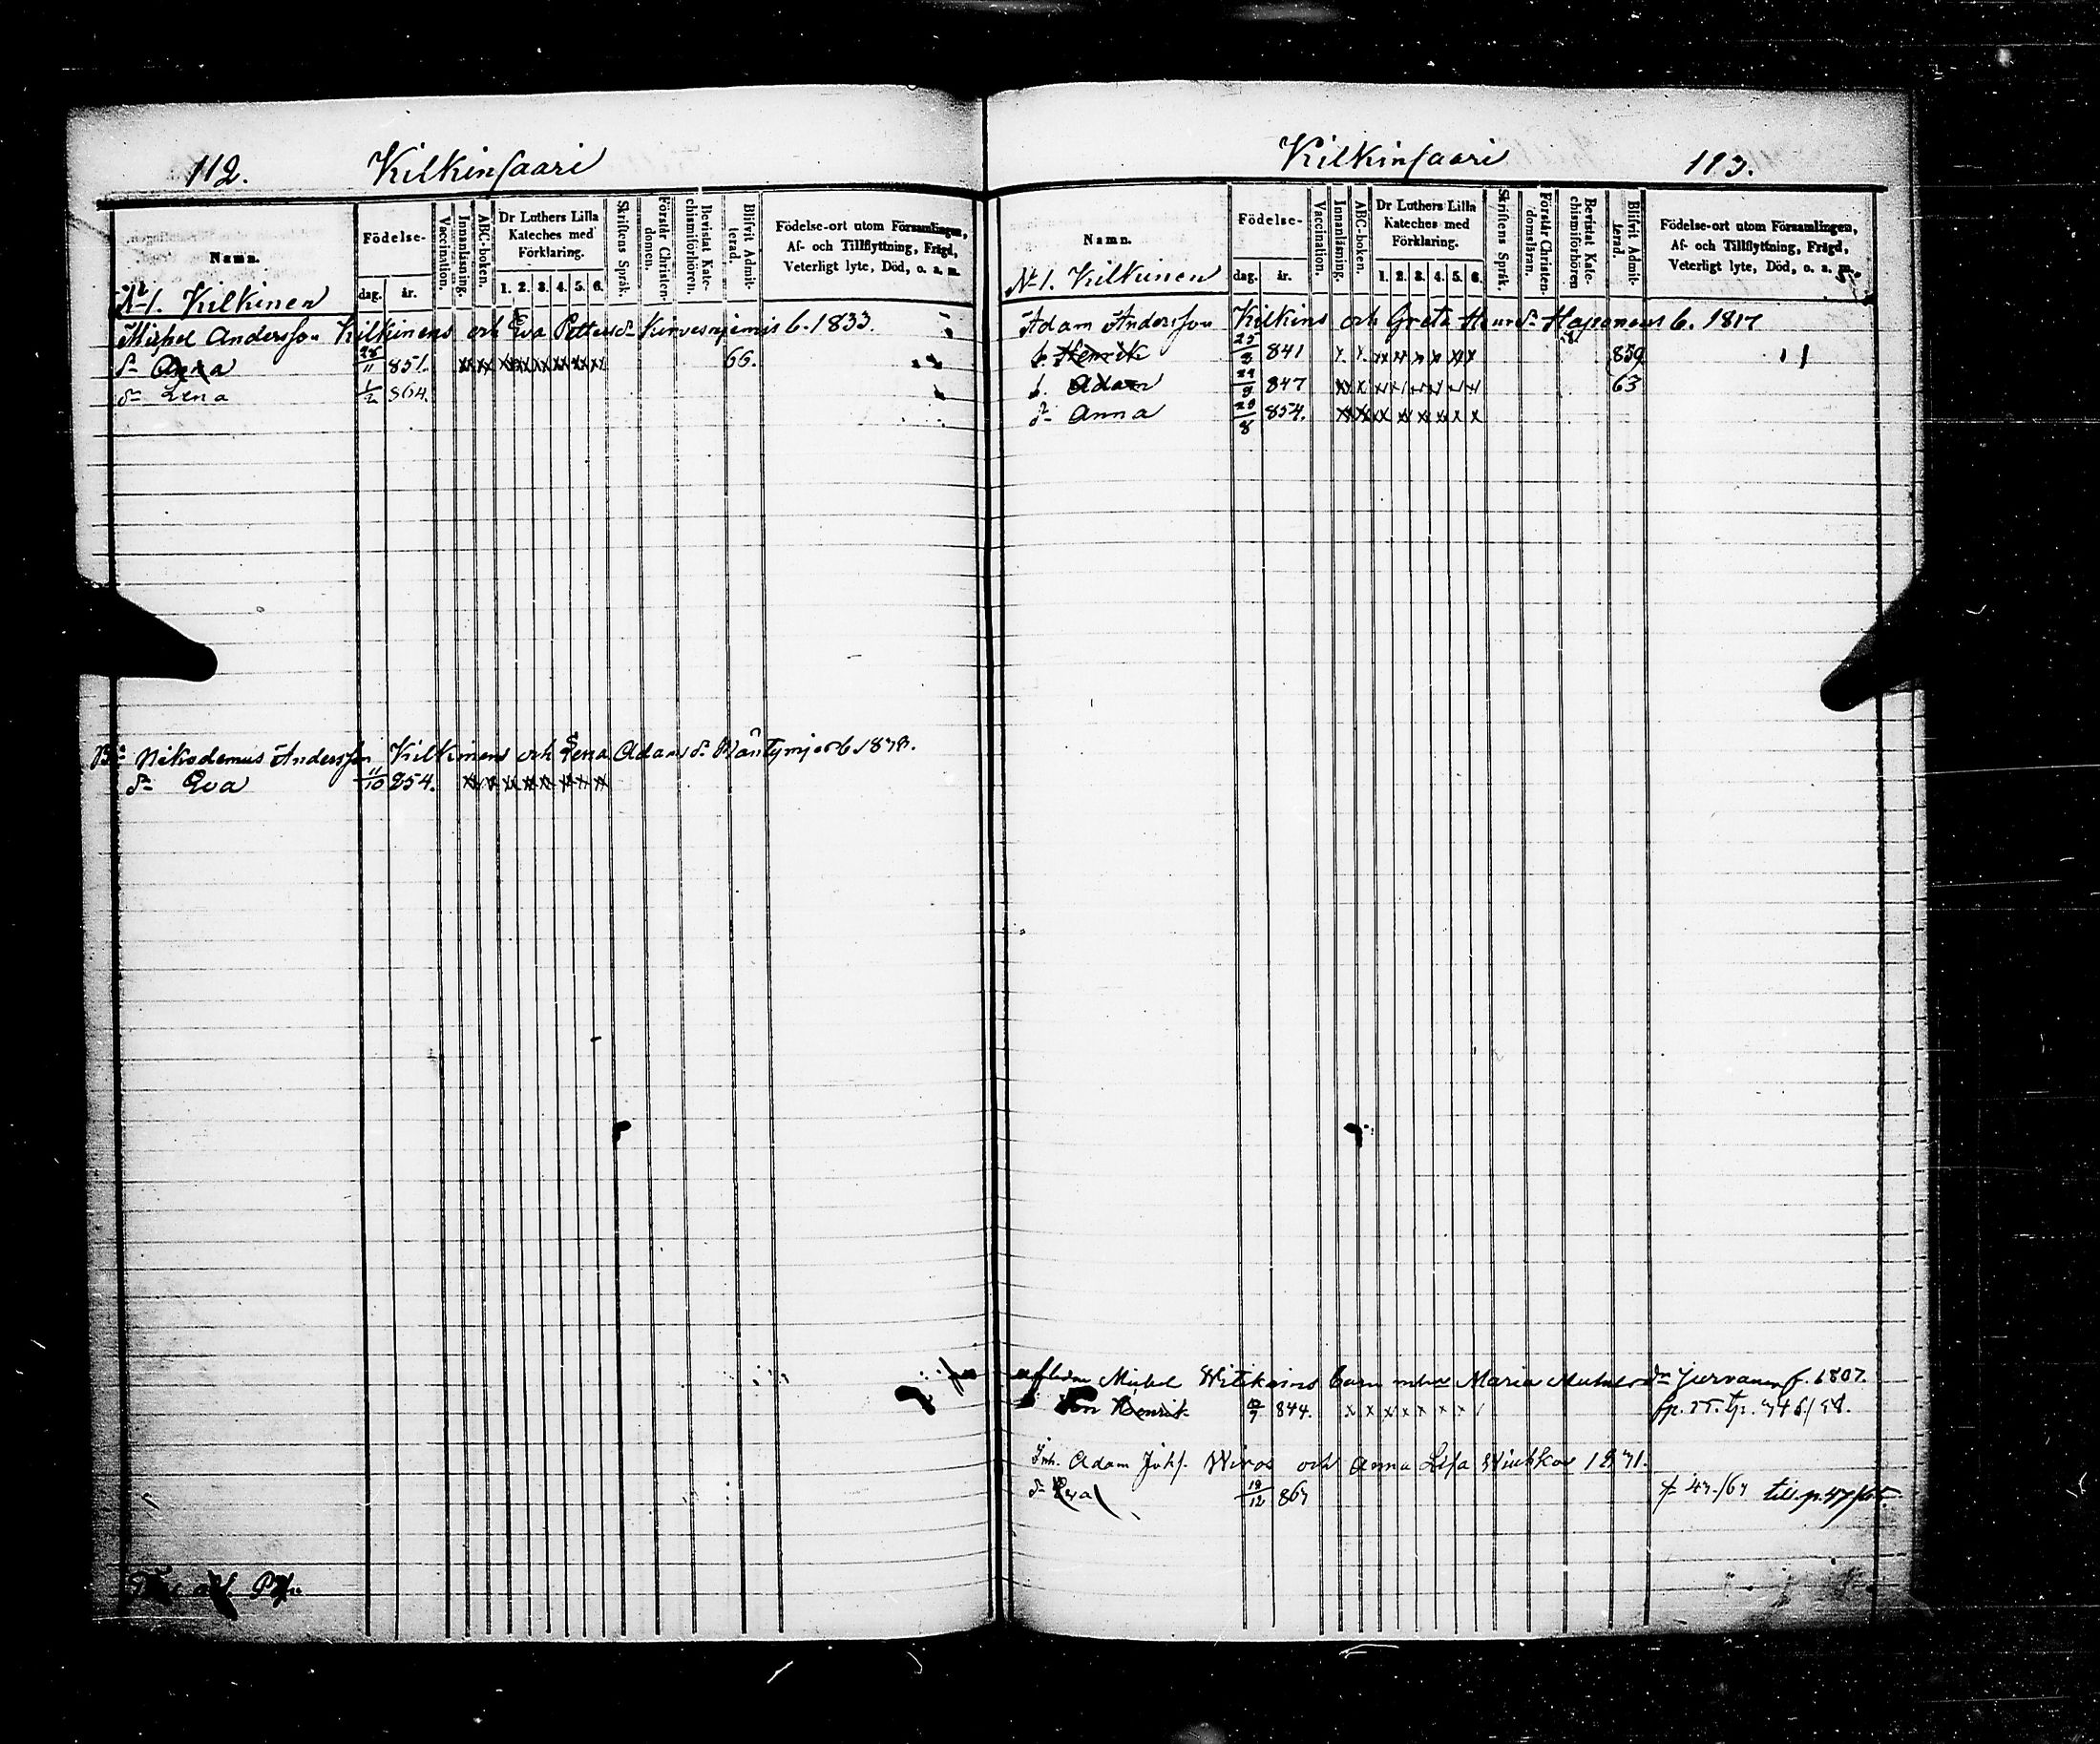 112. Kilkinsaari
Namn.
Födelse-
dag. år.
Vaccination.
Innanläsning.
ABC-boken.
Dr Luthers Lilla Kateches med Förklaring.
1. 2. 3. 4. 5. 6.
Skriftens Språk.
Förstår Christendomen.
Bevistat Katechismiförhören.
Blifvit Admitterad.
Födelse-ort utom Församlingen,
Af- och Tillflyttning, Frägd,
Veterligt lyte, Död, o. s. m.
No 1. Kilkinen
Michel Andersson Kilkinens och Eva Pettersdr b. 1833.
dr Anna 28/11 851. xx xx xx xx xx xx xx xx 66.
dr Lena 1/2 864.
Nikodemus Andersson Kilkinens och Lena Adamsdr
dr Eva 11/10 854. xx xx xx xx xx xx xx xx
Kilkinsaari 113.
Namn.
Födelse-
dag. år.
Vaccination.
Innanläsning.
ABC-boken.
Dr Luthers Lilla Kateches med Förklaring.
1. 2. 3. 4. 5. 6.
Skriftens Språk.
Förstår Christendomsläran.
Bevistat Katechismiförhören
Blifvit Admitterad.
Födelse-ort utom Församlingen,
Af- och Tillflyttning, Frägd,
Veterligt lyte, Död, o. s. m.
No 1. Kilkinen
Adam Andersson Kilkins och Greta Henrdr Haponens b. 1817
s. Henrik 25/2 841 x x xx xx xx x xx x 859
s. Adam 847 63
dr Anna 20/8 854.
aflidne Michel Witikains barn Maria f. 1807.
son Henrik 844. x x x x x x x
Inh. Adam Johs. Wiros och Anna Lisa 1871.
dr Eva 19/12 867 till p. 47/65